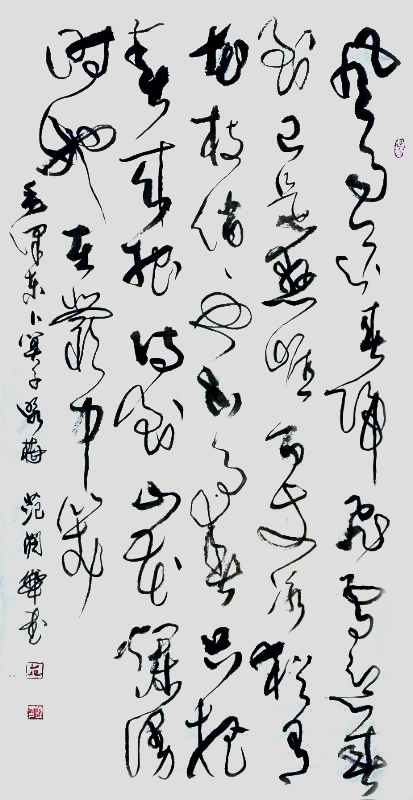 风雨送春归飞雪迎春
到已是悬崖百丈冰犹有
花枝俏、也不争春只把
春来报待到山花烂漫
时她在叢中笑
毛泽东卜算子咏梅 華书